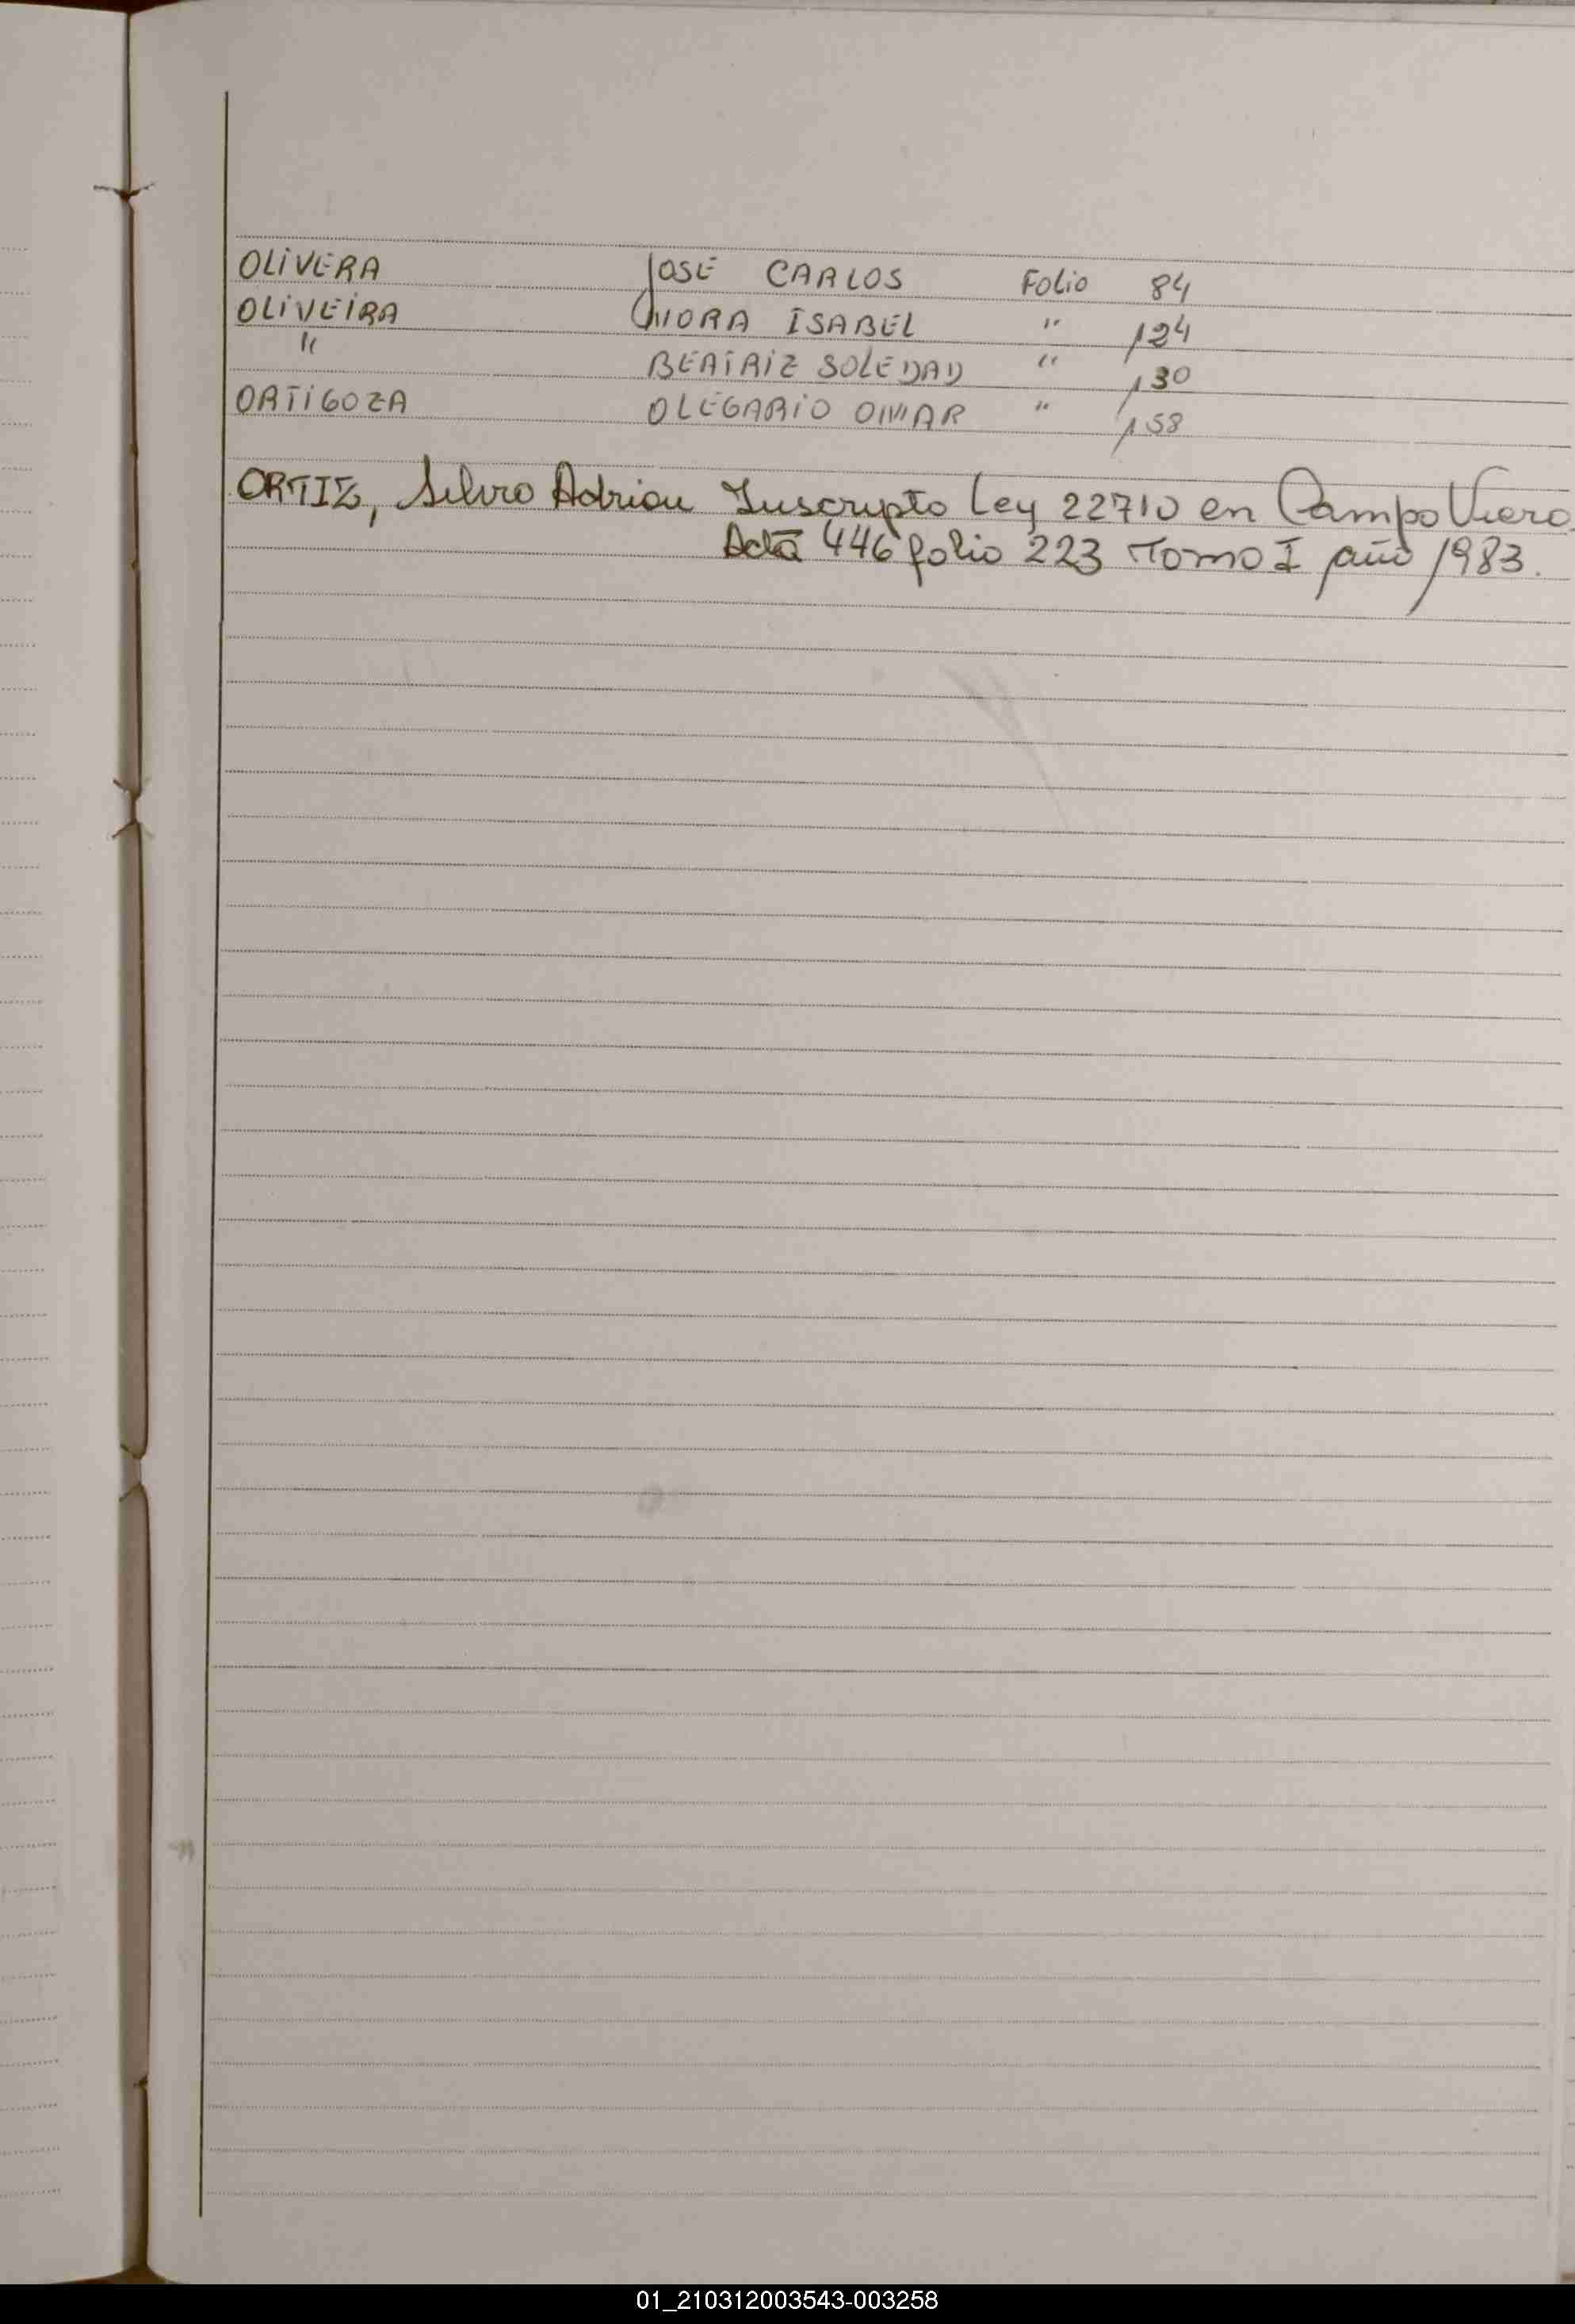 OLIVERA JOSE CARLOS Folio 84
OLIVEIRA NORA ISABEL " 124
" BEATRIZ SOLEDAD " 130
ORTIGOZA OLEGARIO OMAR " 158
ORTIZ, Silvio Adrian Inscripto Ley 22710 en Campo Viera
Acta 446 folio 223 Tomo I año 1983.
01_210312003543-003258